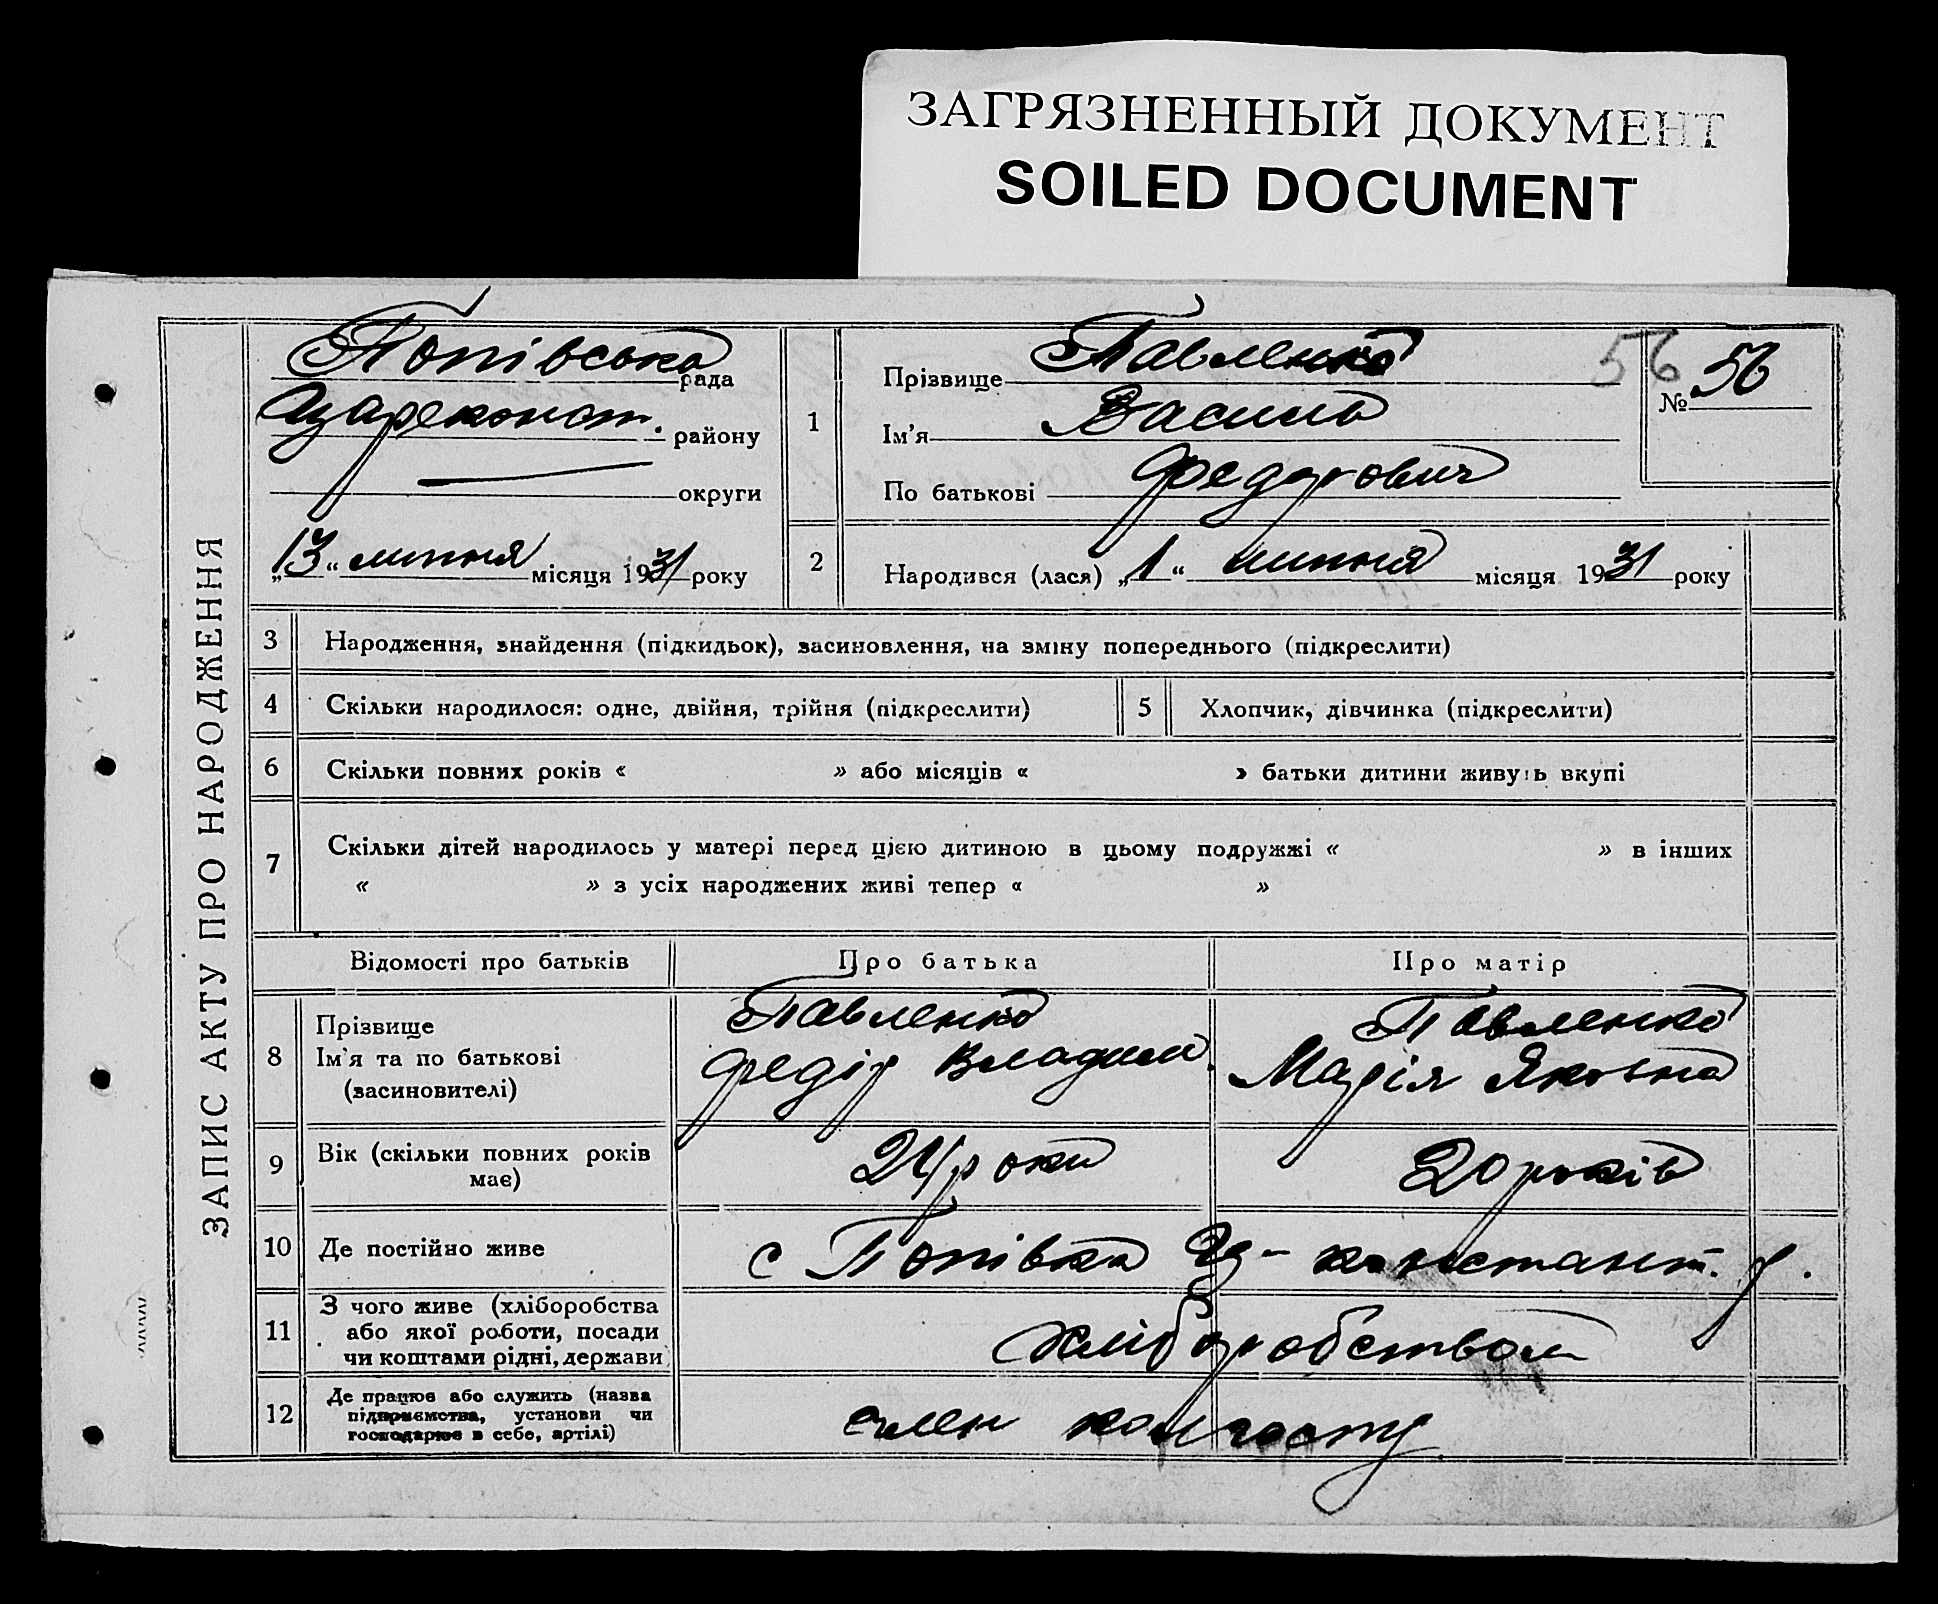 ЗАГРЯЗНЕННЫЙ ДОКУМЕНТ
SOILED DOCUMENT
ЗАПИС АКТУ ПРО НАРОДЖЕННЯ
Попівська рада
Цареконст. району
— округи
„13“ липня місяця 1931 року
1
Прізвище Павленко
Ім'я Василь
По батькові Федорович
56
№ 56
2
Народився (лася) „1“ липня місяця 1931 року
3 Народження, знайдення (підкидьок), засиновлення, на зміну попереднього (підкреслити)
4 Скільки народилося: одне, двійня, трійня (підкреслити)
5 Хлопчик, дівчинка (підкреслити)
6 Скільки повних років « » або місяців « » батьки дитини живуть вкупі
7 Скільки дітей народилось у матері перед цією дитиною в цьому подружжі « » в інших
« » з усіх народжених живі тепер « »
Відомості про батьків Про батька Про матір
8
Прізвище
Ім'я та по батькові
(засиновителі)
Павленко
Федір Владим.
Павленко
Марія Яковна
9
Вік (скільки повних років
має)
24 роки
20 років
10 Де постійно живе
с Попівка Ц-констант. р.
11
З чого живе (хліборобства
або якої роботи, посади
чи коштами рідні, держави
хліборобством
12
Де працює або служить (назва
підприємства, установи чи
господарює в себе, артілі)
член колгоспу